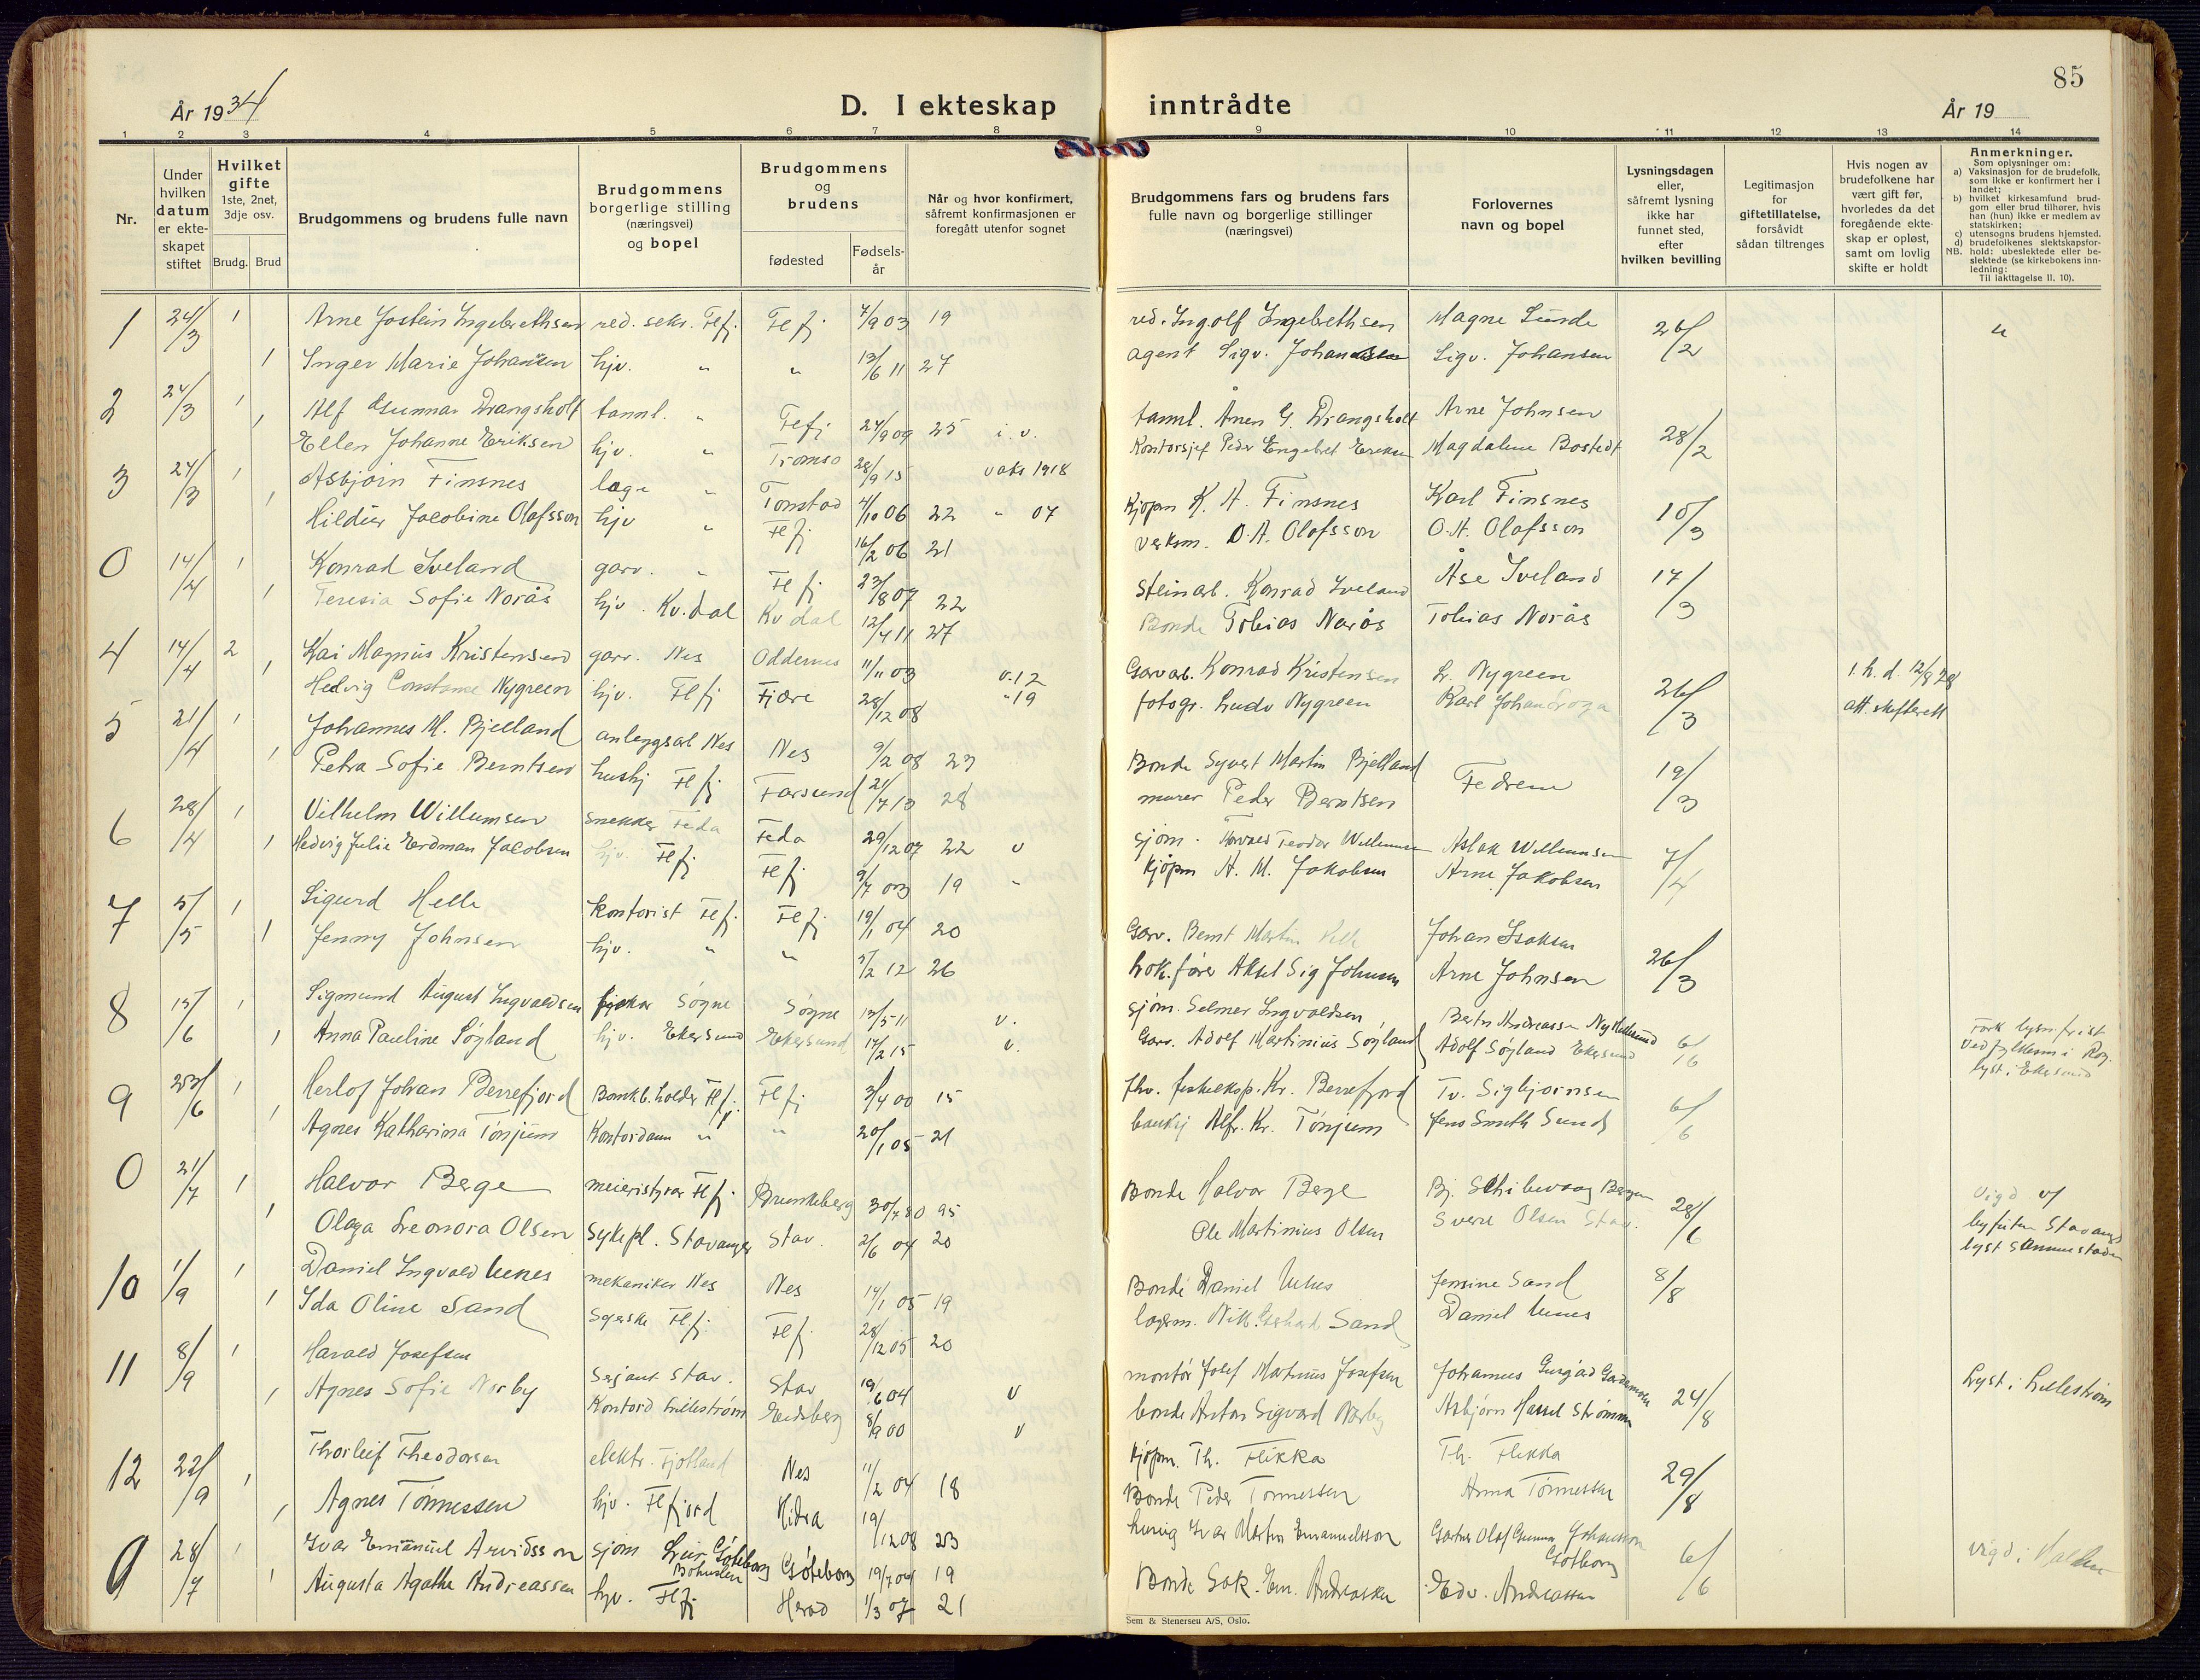 85
År 1934
D. I ekteskap inntrådte
År 19
1 2 3 4 5 6 7 8 9 10 11 12 13 14
Nr.
Under hvilken datum er ekteskapet stiftet
Hvilket gifte 1ste, 2net, 3dje osv.
Brudg. Brud
Brudgommens og brudens fulle navn
Brudgommens borgerlige stilling (næringsvei) og bopel
Brudgommens og brudens
fødested
Fødselsår
Når og hvor konfirmert, såfremt konfirmasjonen er foregått utenfor sognet
Brudgommens fars og brudens fars fulle navn og borgerlige stillinger (næringsvei)
Forlovernes navn og bopel
Lysningsdagen eller, såfremt lysning ikke har funnet sted, efter hvilken bevilling
Legitimasjon for giftetillatelse, forsåvidt sådan tiltrenges
Hvis nogen av brudefolkene har vært gift før, hvorledes da det foregående ekteskap er opløst, samt om lovlig skifte er holdt
Anmerkninger.
Som oplysninger om:
a) Vaksinasjon for de brudefolk, som ikke er konfirmert her i landet;
b) hvilket kirkesamfund brudgom eller brud tilhører, hvis han (hun) ikke er medlem av statskirken;
c) utensogns brudens hjemsted.
d) brudefolkenes slektskapsforhold: ubeslektede eller beslektede (se kirkebokens innledning:
NB.
Til iakttagelse II. 10).
1 24/3 1 Arne Jostein Ingebrethsen red. sekr. Flfj. Flfj 7/9 03 19 red. Ingolf Ingebrethsen Magne Sunde 26/2 "
1 Inger Marie Johansen hjv. " " 13/6 11 27 agent Sigv. Johansen Sigv. Johansen
2 24/3 1 Alf Gunnar Drangsholt tannl. " Flfj 24/9 09 25 i. v. tannl. Anen G. Drangsholt Arne Johnsen 28/2
1 Ellen Johanne Eriksen hjv. " Tromsø 28/9 15 vaks 1918 Kontorsjef Peder Engebret Eriksen Magdalene Bostedt
3 24/3 1 Asbjørn Finsnes lage " Tonstad 4/10 06 22 " 07 Kjøpm K. A. Finsnes Karl Finsnes 10/3
1 Hildur Jacobine Olafsson hjv " Flfj 16/2 06 21 verksm. O. A. Olafsson O. A. Olafsson
0 14/4 1 Konrad Iveland garv. " Flfj 23/8 07 22 Steinarb. Konrad Iveland Åse Iveland 17/3
1 Teresia Sofie Norås hjv. Kv.dal Kv dal 12/4 11 27 Bonde Tobias Norås Tobias Norås
4 14/4 2 Kai Magnus Kristensen garv. Nes Oddernes 11/11 03 v. 12 Garvarb. Konrad Kristensen L. Nygreen 26/3 1. h. d. 12/8 28
1 Hedvig Constanse Nygreen hjv. Flfj Fjære 28/12 08 " 19 fotogr. Ludv Nygreen Karl Johan att. skifterett
5 21/4 1 Johannes M. Bjelland anleggsarb Nes Nes 9/2 08 23 Bonde Syvert Martin Bjelland Fedrene 19/3
1 Petra Sofie Berntsen hushj Flfj Farsund 21/7 13 28 murer Peder Berntsen
6 28/4 1 Vilhelm Willumsen snekker Feda Feda 29/12 07 22 v sjøm. Teodor Willumsen Aslak Willumsen 7/4
1 Hedvig Julie Erdman Jacobsen hjv. Flfj Flfj 9/7 03 19 " kjøpm A. M. Jakobsen Arne Jakobsen
7 5/5 1 Sigurd Helle kontorist Flfj. Flfj 19/1 04 20 Garv. Bernt Martin Helle Johan Isaksen 26/3
1 Jenny Johnsen hjv. " " 7/2 12 26 lok.fører Aksel Sig Johnsen Arne Johnsen
8 15/6 1 Sigmund August Ingvaldsen fisker Søgne Søgne 13/5 11 v. sjøm. Selmer Ingvaldsen Berto Andreassen Ny Hellesund 6/6
1 Anna Pauline Søyland hjv. Ekersund Ekersund 17/2 15 v. Garv. Adolf Martinius Søyland Adolf Søyland Ekersund
Fork lysn.frist
ved fylkesm i Rog.
lyst i Ekersund
9 23/6 1 Herlof Johan Berrefjord Bankb.holder Flfj. Flfj 3/4 00 15 fhv. fiskeeksp. Kr. Berrefjord Tv. Sigbjørnsen 6/6
1 Agnes Katharina Tønjum Kontordam " " 20/1 05 21 Alfr. Kr. Tønjum Jens Smith Sunds
0 21/7 1 Halvor Berge meieristyrer Flfj. Brunkeberg 30/7 80 95 Bonde Halvor Berge Bj. Schibevaag Bergen 28/6
1 Olaga Leonora Olsen Sykepl. Stavanger Stav. 2/6 04 20 Ole Martinius Olsen Sverre Olsen Stav.
Vigd v/
byfuten Stavanger
lyst
10 1/9 1 Daniel Ingvald Unes mekaniker Nes Nes 14/1 05 19 Bonde Daniel Unes Jensine Sand 8/8
1 Ida Oline Sand Syerske Flfj. Flfj 28/12 05 20 lagerm. Nik. Gerhard Sand Daniel Unes
11 8/9 1 Harald Josefsen Sersjant Stav. Stav 19/6 04 v montør Josef Martinus Josefsen Johannes Gardemoen 24/8 Lyst i Lillestrøm
1 Agnes Sofie Norby Kontord Lillestrøm Eidsberg 8/9 00 v bonde Anton Sigvard Nørby Asbjørn Hassel Strømmen
12 22/9 1 Thorleif Theodorsen elektr. Fjotland Nes 11/2 04 18 kjøpm. Th. Flikka Th. Flikka 29/8
1 Agnes Tønnessen hjv. Flfjord Hidra 19/12 08 23 Bonde Peder Tønnessen Anna Tønnessen
0 28/7 1 Ivar Emanuel Arvidsson sjøm Göteborg Bohuslen Göteborg 19/7 04 19 Ivar Martin Emanuelsson Gartner Olof Gunnar Johansson Gøtborg 6/6 vigd i Halden
1 Augusta Agathe Andreassen hjv. Flfj Herad 1/3 07 21 Bonde Sak. Em. Andreassen Edv. Andreassen
Sem & Stenersen A/S, Oslo.